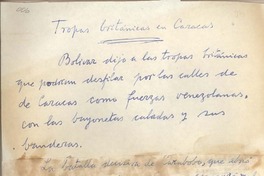 Tropas británicas en Caracas
Bolívar dijo a las tropas británicas
que podían desfilar por las calles de
de Caracas como fuerzas venezolanas,
con las bayonetas caladas y sus
banderas.
La batalla decisiva de Carabobo, que abrió